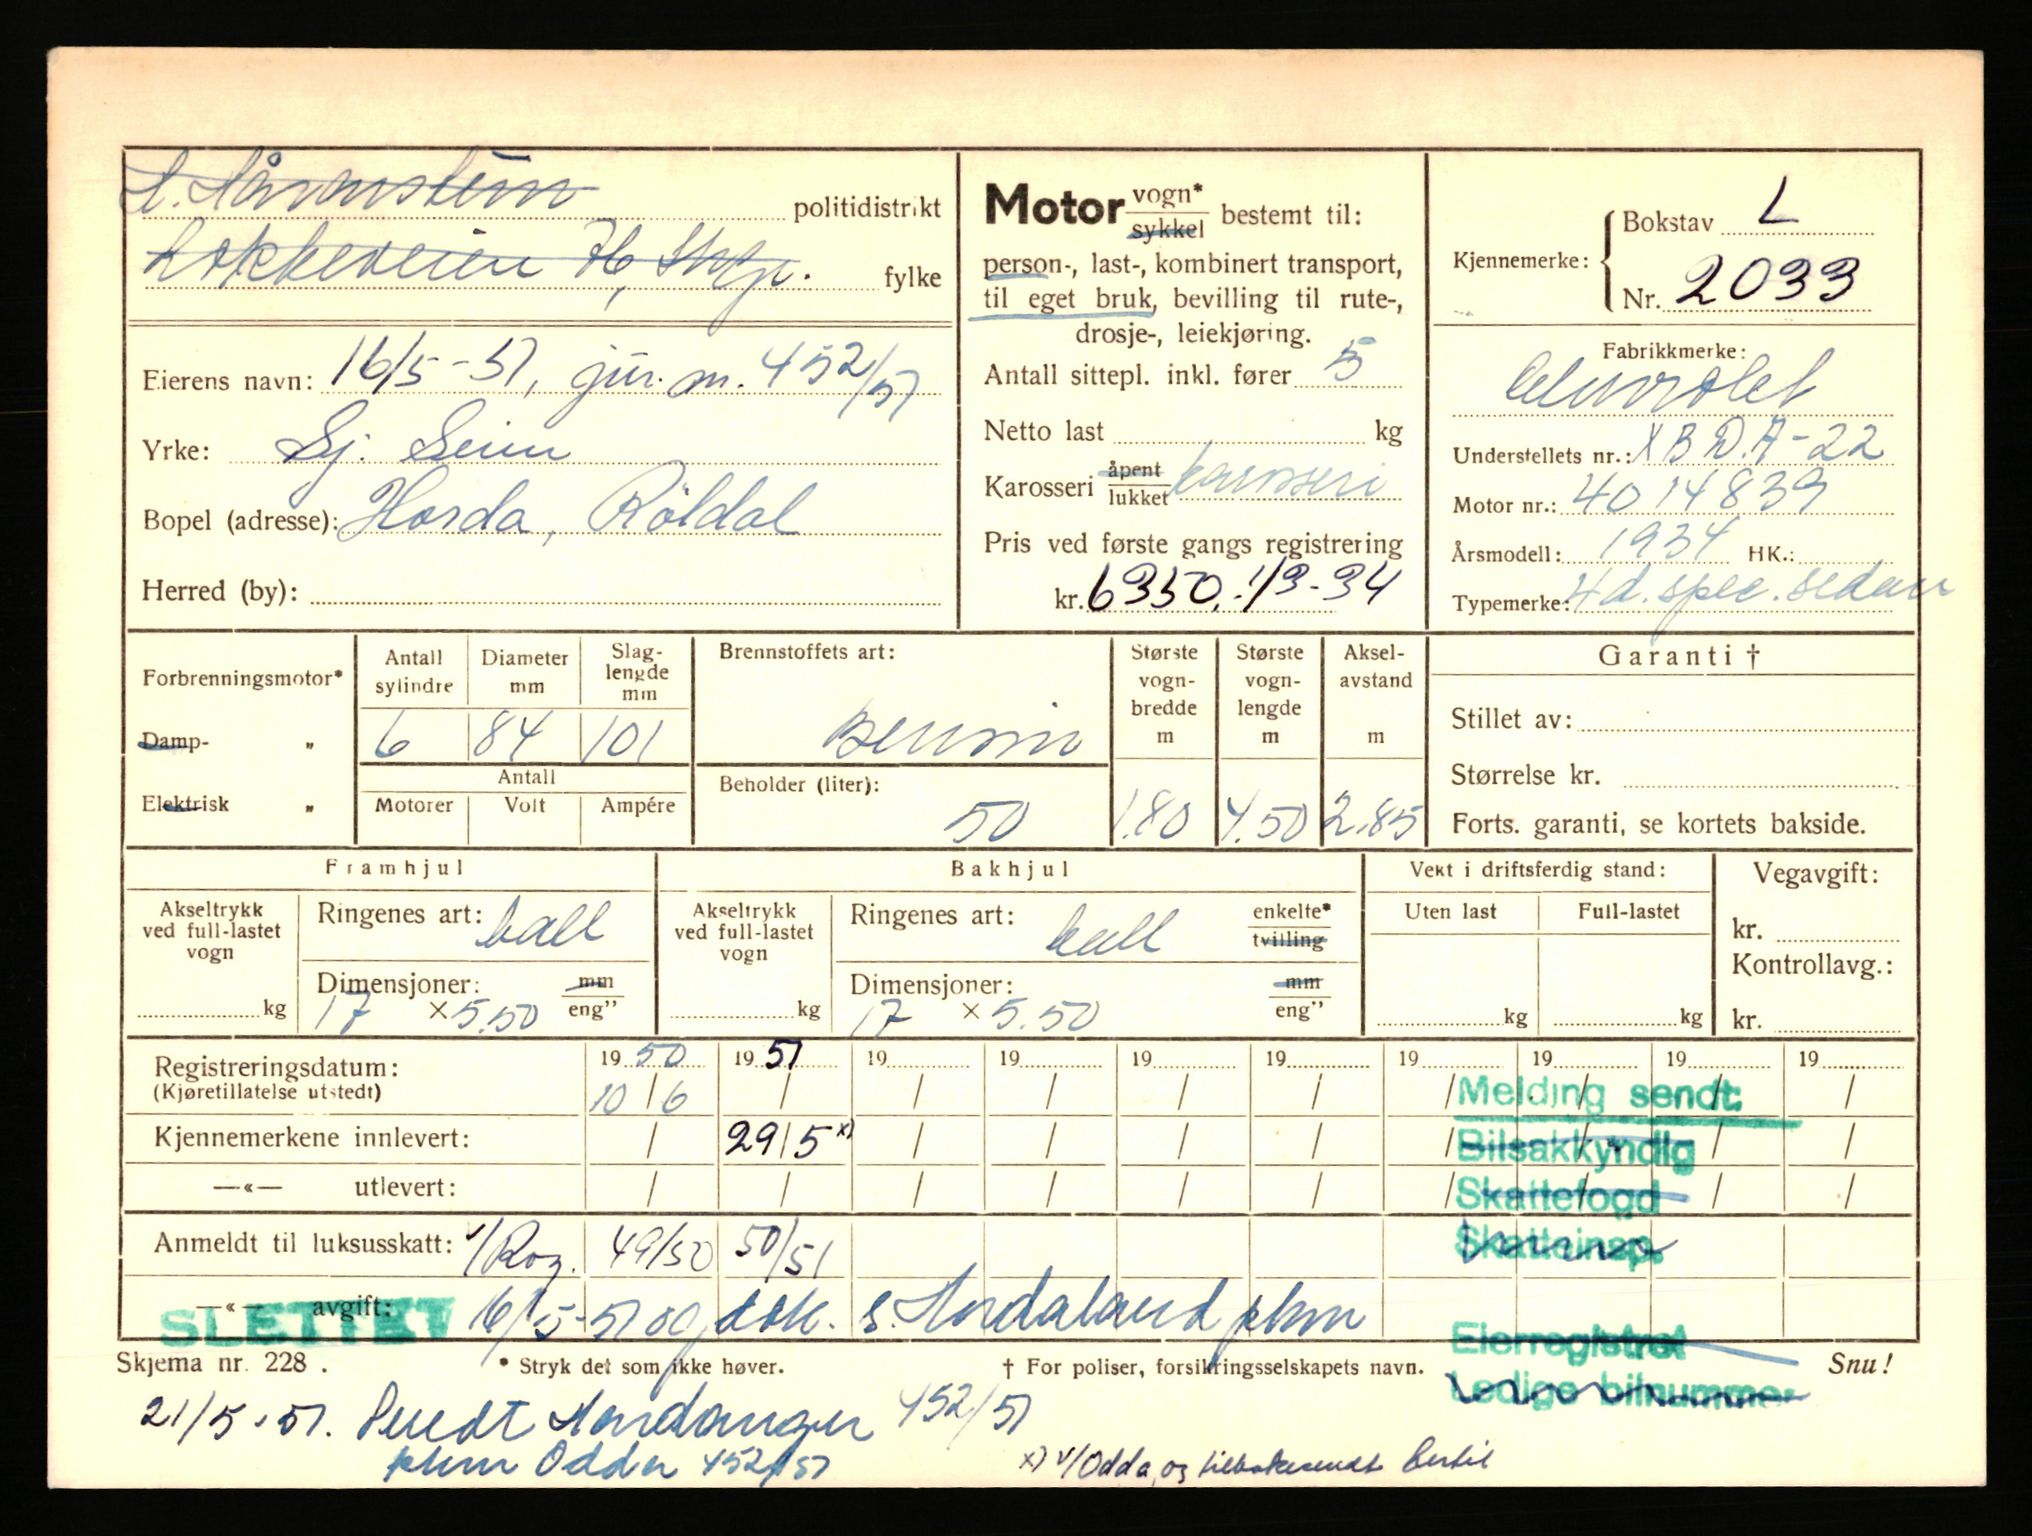 politidistrikt
fylke
Eierens navn: 16/5-51, jur. m. 452/51
Yrke: Sj. Seim
Bopel (adresse): Horda, Röldal
Herred (by):
Motor vogn*
sykkel bestemt til:
person-, last-, kombinert transport,
til eget bruk, bevilling til rute-,
drosje-, leiekjøring.
Antall sittepl. inkl. fører 5
Netto last kg
Karosseri åpent
lukket karosseri
Pris ved første gangs registrering
kr. 6350,- 1/3-34
Kjennemerke: Bokstav L
Nr. 2033
Fabrikkmerke:
Chevrolet
Understellets nr.: XBD.A-22
Motor nr.: 4014839
Årsmodell: 1934 HK.:
Typemerke: 4d. spec. sedan
Forbrenningsmotor*
Damp- "
Elektrisk "
Antall sylindre 6
Diameter mm 84
Slag-lengde mm 101
Antall
Motorer Volt Ampére
Brennstoffets art:
Bensin
Beholder (liter):
50
Største vogn-bredde m 1.80
Største vogn-lengde m 4.50
Aksel-avstand m 2.85
Garanti †
Stillet av:
Størrelse kr.
Forts. garanti, se kortets bakside.
Framhjul
Akseltrykk ved full-lastet vogn kg
Ringenes art: ball
Dimensjoner: mm
17 × 5.50 eng"
Bakhjul
Akseltrykk ved full-lastet vogn kg
Ringenes art: ball enkelte*
tvilling
Dimensjoner: mm
17 × 5.50 eng"
Vekt i driftsferdig stand:
Uten last Full-lastet
kg kg
Vegavgift:
kr.
Kontrollavg.:
kr.
Registreringsdatum: 19 50 19 51 19 19 19 19 19 19 19 19
(Kjøretillatelse utstedt) 10/6 / / / / / / / / /
Melding sendt:
Kjennemerkene innlevert: / 29/5 x) / / / / / / / /
Bilsakkyndig
—«— utlevert: / / / / / / / / / /
Skattefogd
Anmeldt til luksusskatt: 1/Rog. 49/50 50/51
Skatteinsp.
—«— avgift: 16/5-51 og dok. s. Hordaland pkm
SLETTET
Eierregistret
Skjema nr. 228. * Stryk det som ikke høver. † For poliser, forsikringsselskapets navn. Snu!
Ledige bilnummer
21/5-51. Sendt Hardanger 452/51
pkm Odda 452/51
x) v/Odda, og tilbakesendt